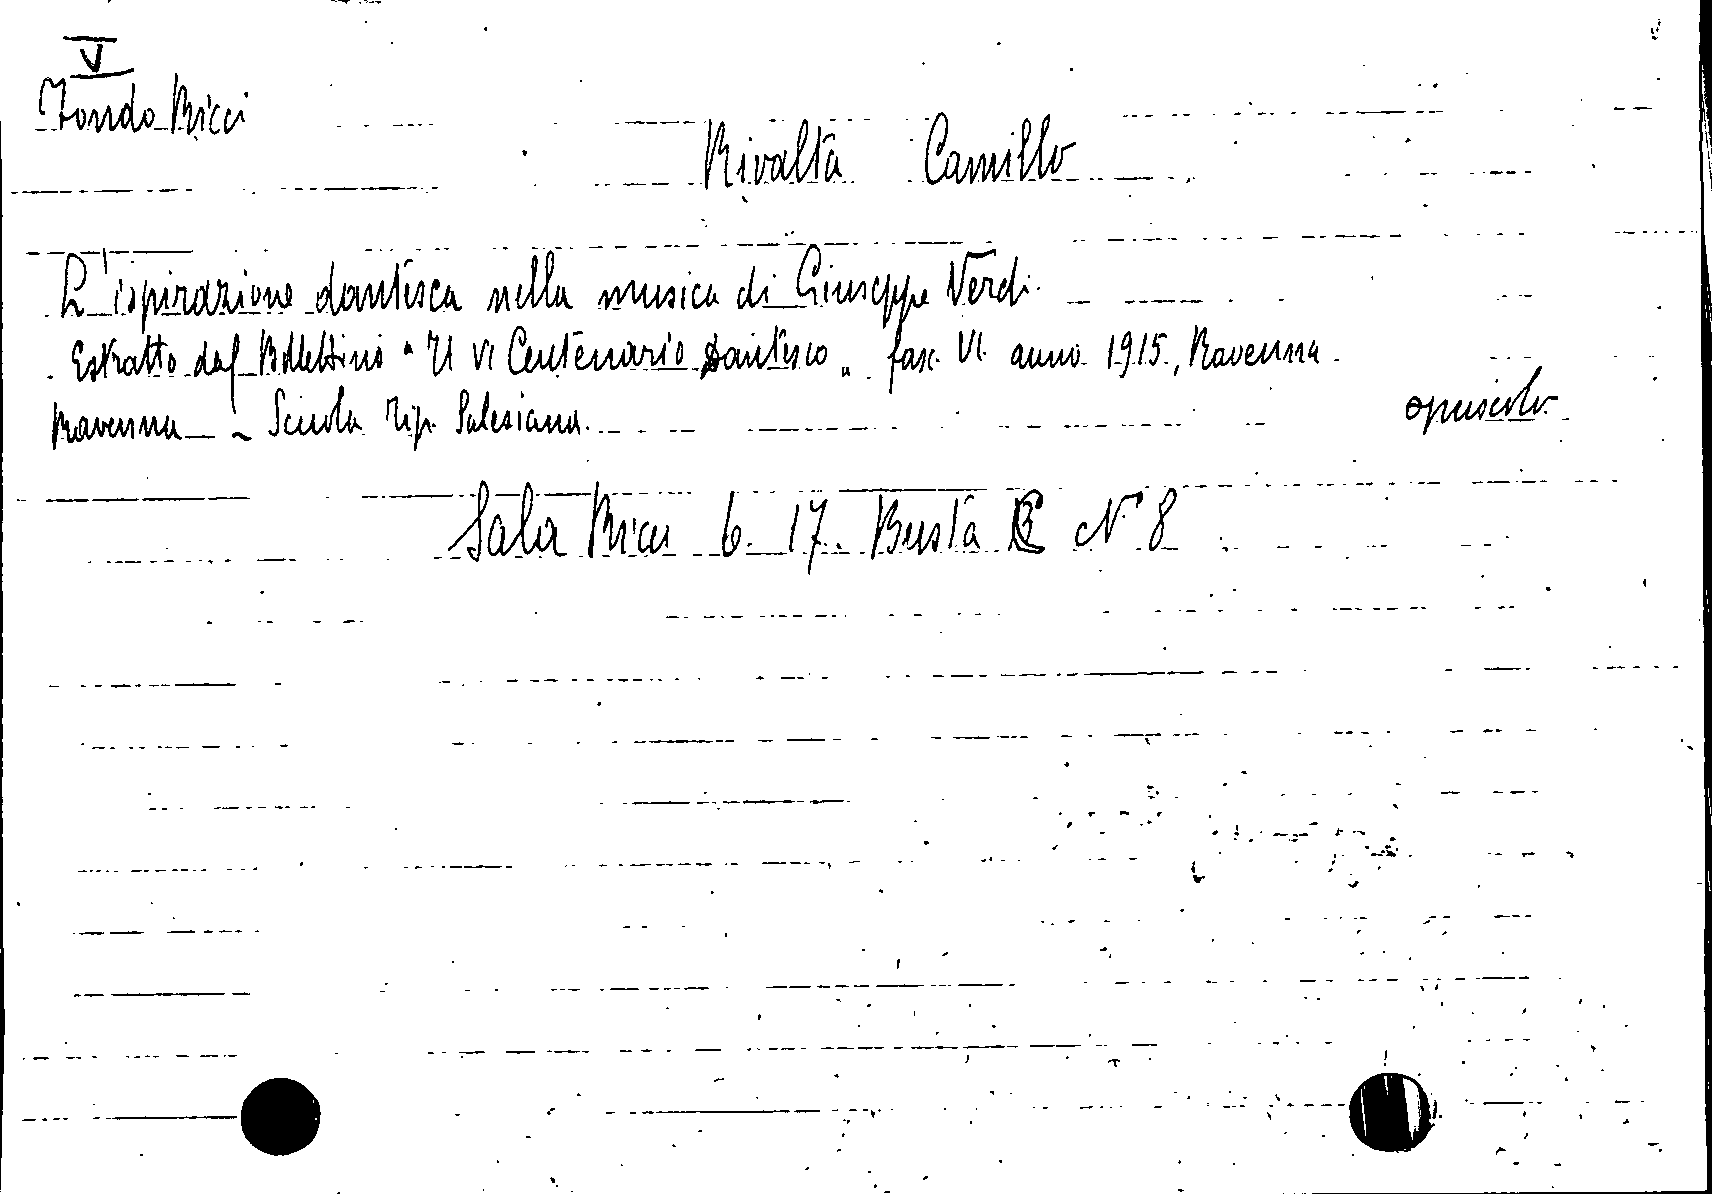 V
Fondo Ricci
Rivalta Camillo
L'ispirazione dantesca nella musica di Giuseppe Verdi.
Estratto dal Bollettino "Il VI Centenario Dantesco" fasc. VI. anno 1915, Ravenna.
Ravenna - Scuola Tip. Salesiana.
opuscolo.
Sala Ricci 6. 17. Busta N° 8